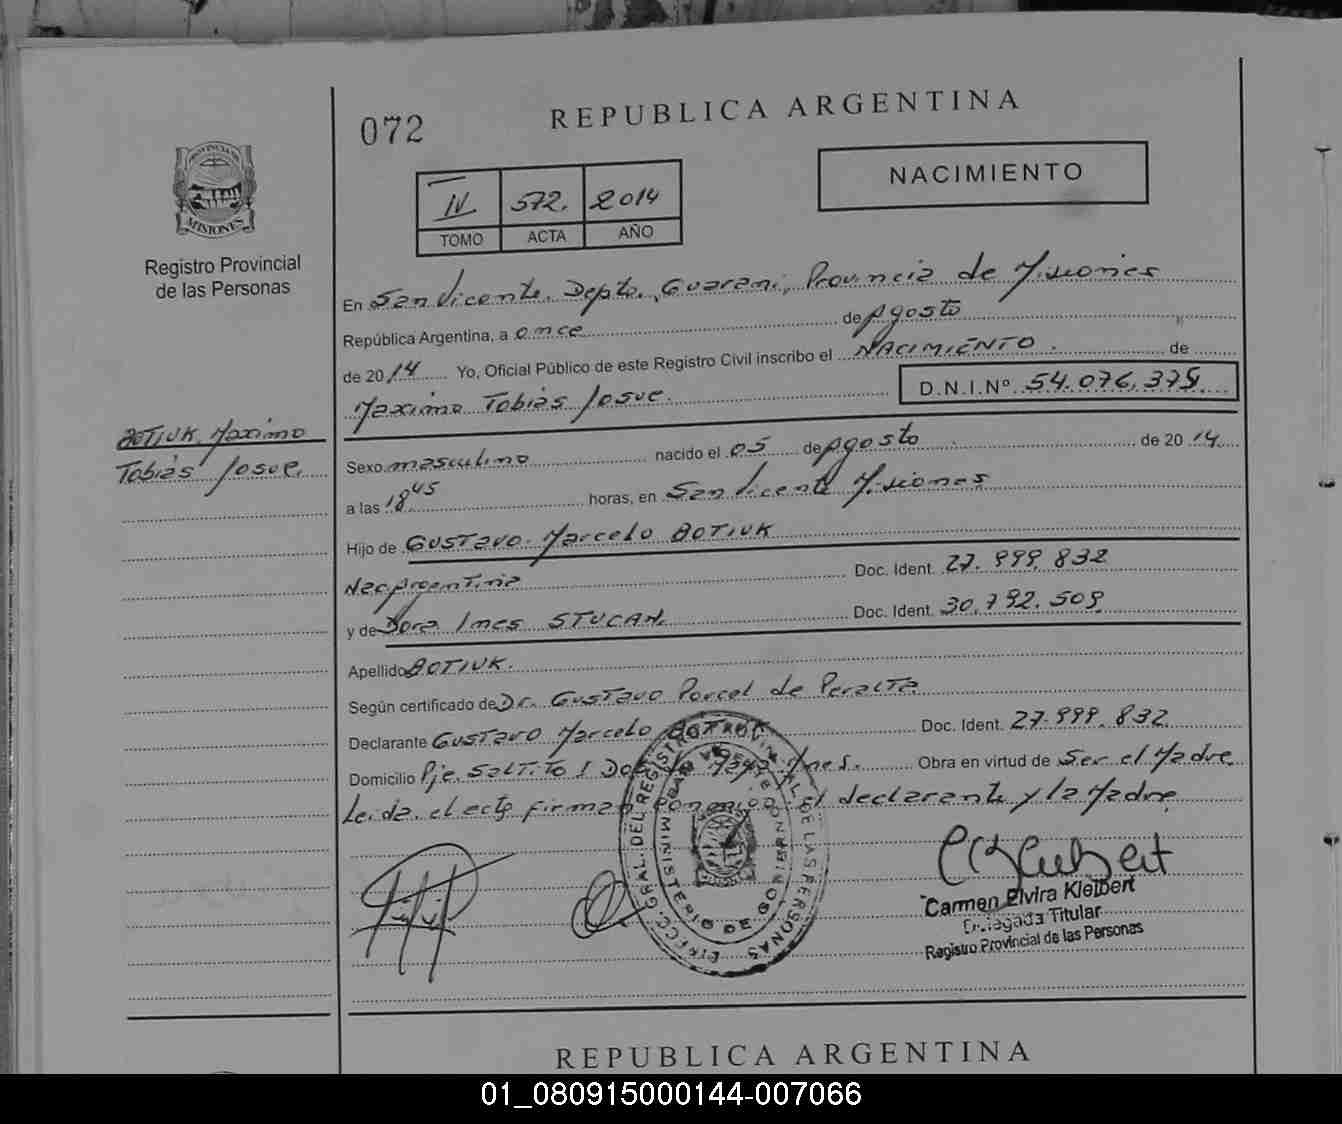 REPUBLICA ARGENTINA
072
NACIMIENTO
IV 572. 2014
TOMO ACTA AÑO
PROVINCIA DE MISIONES
Registro Provincial
de las Personas
En San Vicente, Depto. Guarani, Provincia de Misiones
República Argentina, a once de Agosto
de 2014 Yo, Oficial Público de este Registro Civil inscribo el NACIMIENTO. de
Maximo Tobias Josue. D.N.I.Nº 54.076.375
BOTIUK, Maximo
Tobias Josue.
Sexo masculino nacido el 05 de Agosto de 2014
a las 18 45 horas, en San Vicente Misiones
Hijo de Gustavo Marcelo BOTIUK
Nac. Argentina Doc. Ident. 27.999.832
y de Dora Ines STUCAN. Doc. Ident. 30.792.509
Apellido BOTIUK.
Según certificado de Dr. Gustavo Porcel de Peralta
Declarante Gustavo Marcelo BOTIUK Doc. Ident. 27.999.832
Domicilio Pje. Saltito 1 Dos de Mayo Mnes. Obra en virtud de Ser el Padre
Leida el acta firman conmigo el declarante y la Madre
DIRECC. GRAL. DEL REGISTRO PROVINCIAL DE LAS PERSONAS
MINISTERIO DE GOBIERNO
Carmen Elvira Kleibert
Delegada Titular
Registro Provincial de las Personas
REPUBLICA ARGENTINA
01_080915000144-007066